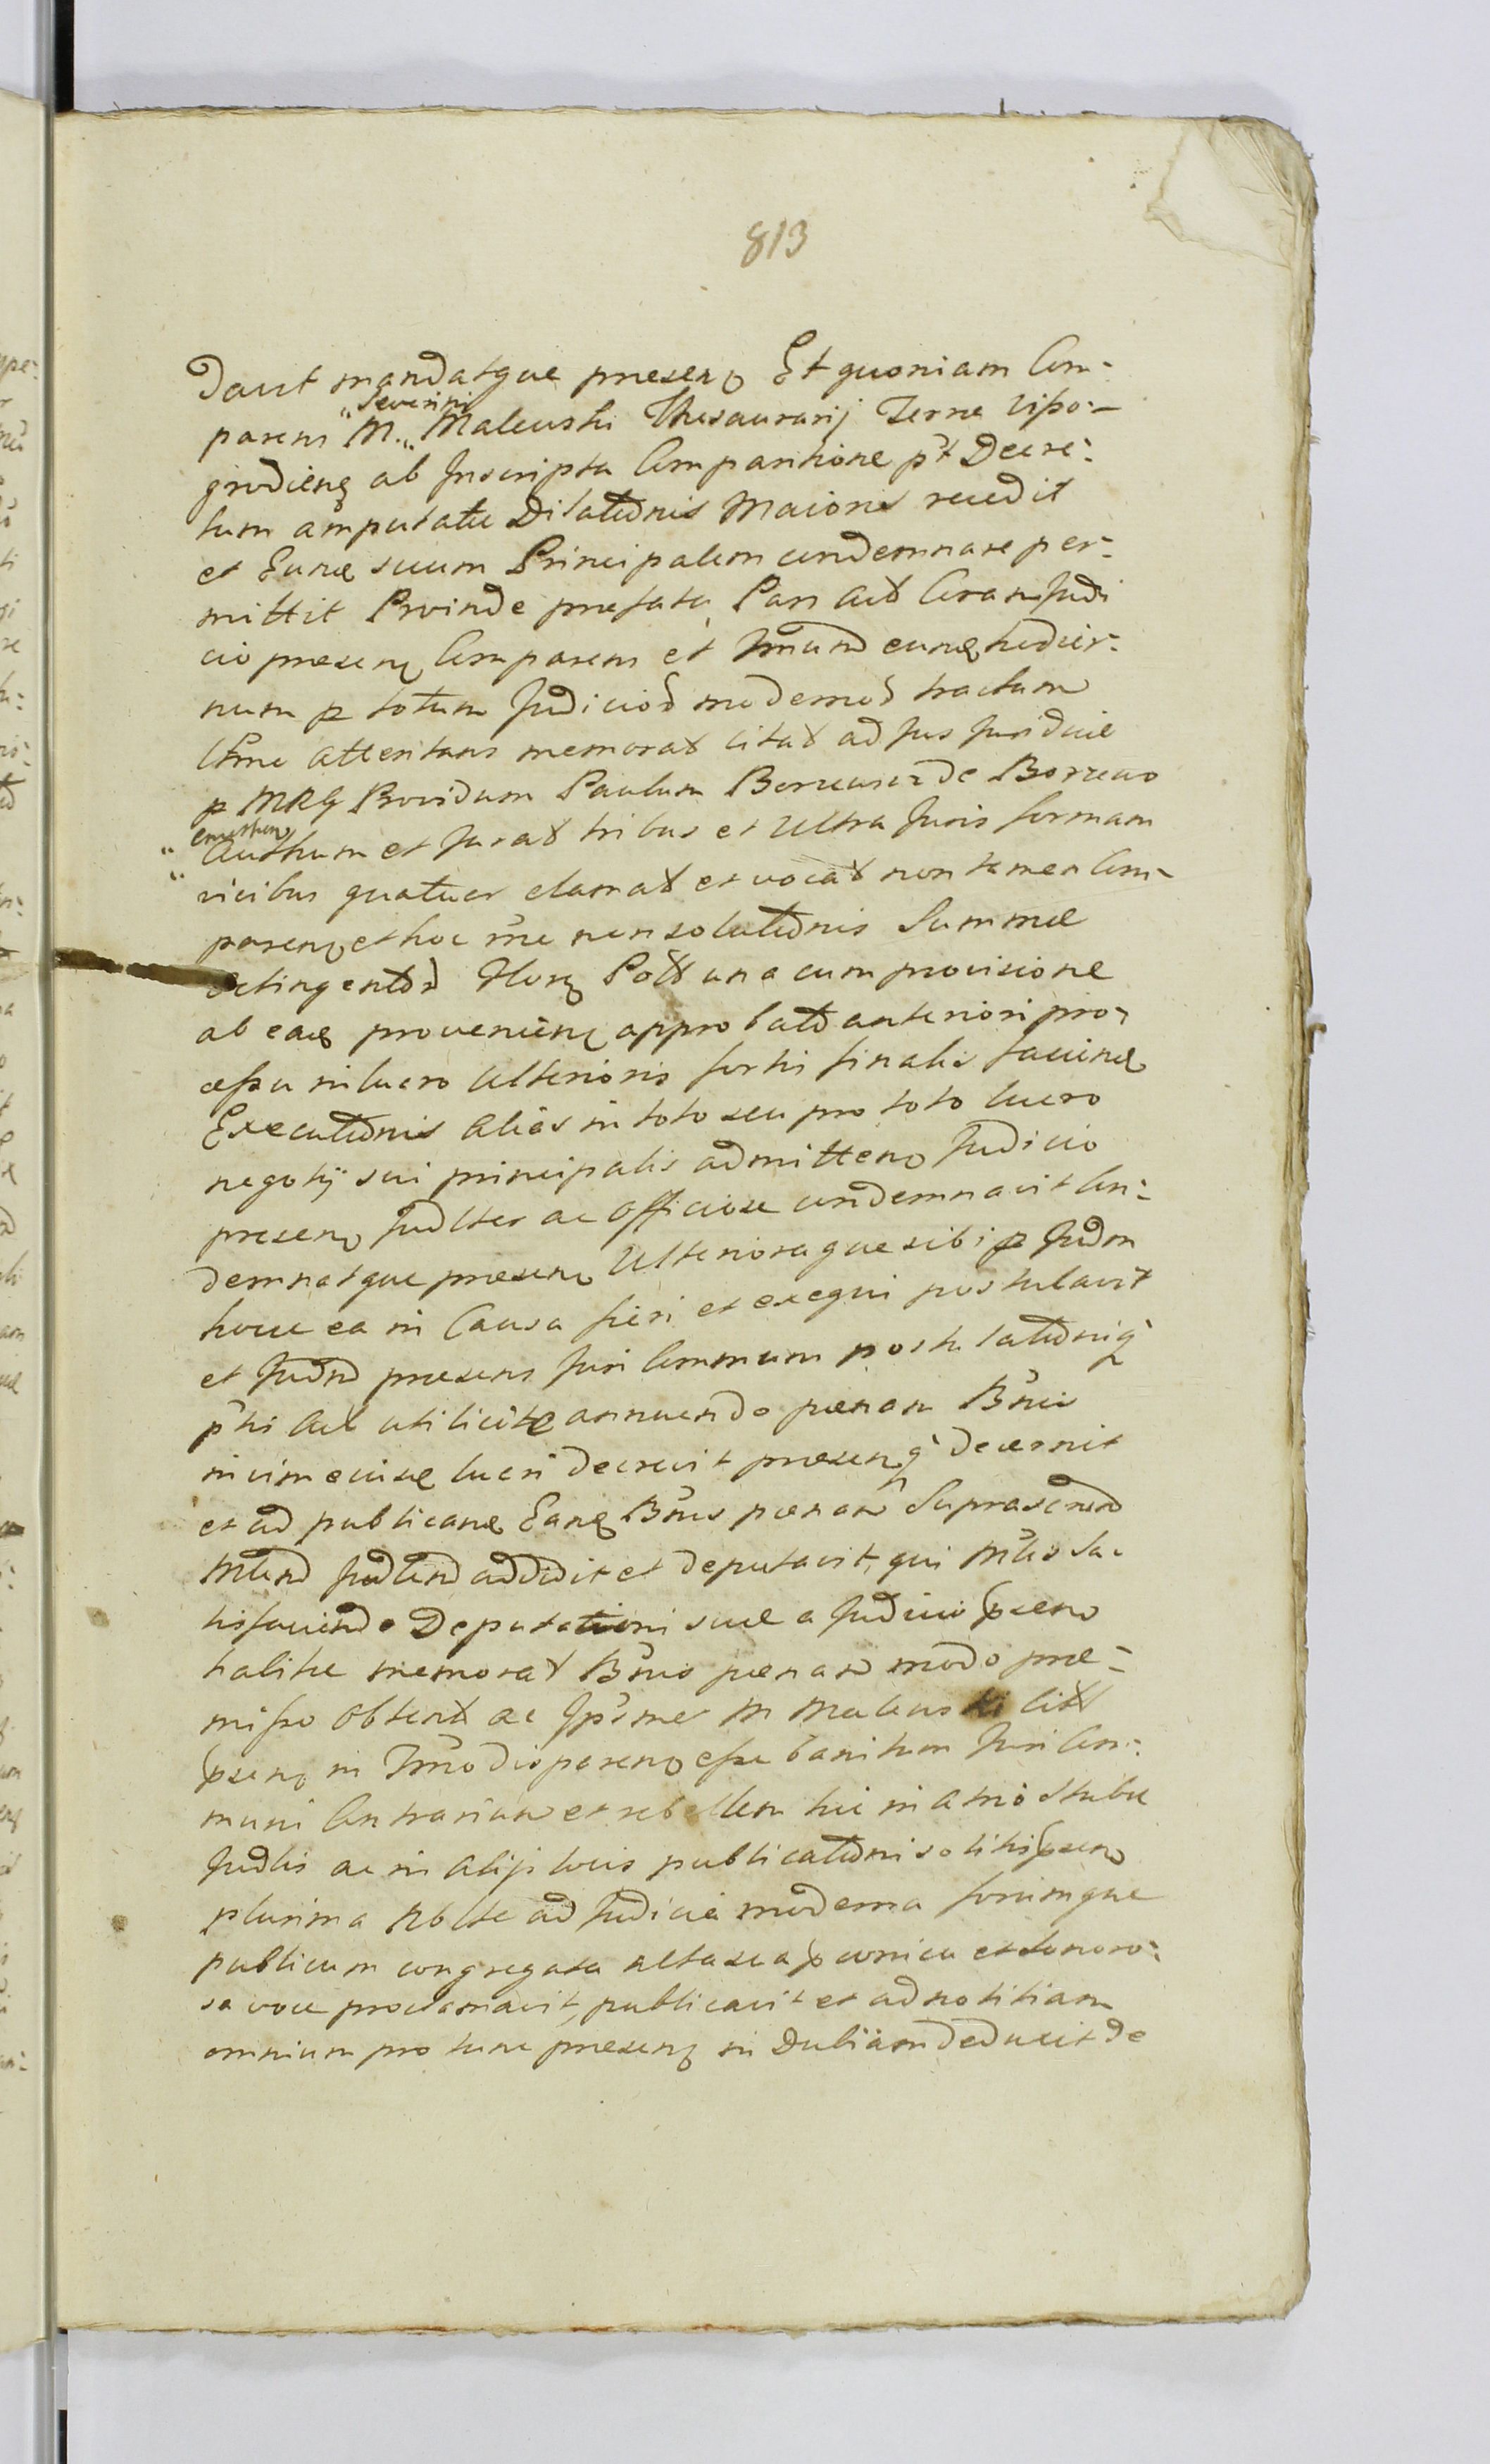 813
davit mandatque presen Et quoniam Com-
parens M. "Severini" Maleuski Thesaurarij Terrae Lipo-
grodien ab Inscripta Comparitione pt Decre-
tum amputatae Dilatnis Maioris recedit
et Eund suum Principalem condemnare per-
mittit Proinde praefata Pars Act Coram Judi
cio praesen Comparens et Tmnum eund hodier-
num p totum Judiciod modernod tractum
attentans memorat citat ad Jus Juridice
p MRG Providum Paulum de
"emeritum Authum et Jurat tribus et Ultra Juris formam
vicibus quatuor clamat et vocat non tamen Com-
paren et hoc rne non solutnis Summae
octingentor Flor Poll una cum provisione
ab ead provenien approbatd anteriori pro-
cessu in lucro Ulterioris fortis finalis faciend
Executnis alias in toto seu pro toto lucro
negotij sui principalis admitten Judicio
presen Judlter ac Officiose condemnavit Con-
demnatque praesen Ulterioraque sibi p Judm
hocce ea in Causa fieri et exequi postulavit
et Judm praesens Juri Communi postulatniq
pti Act uti licite annuendo paenam Bnis
in vim evisae lucri decrevit praesenq decernit
et ad publicand Eand Bnis paenam Suprascrit
Mlend Judlend addidit et deputavit, qui Mlis sa-
tisfaciendo Deputationi suae a Judicio praesen
taliter memorat Bnis paenam modo prae-
misso obtent ac Ipsme M Maleuski Citt
praesen in Tmo disparen esse banitum Juri Com-
muni Contrarium et rebellem hic in atrio Stubae
Judlis ac in alijs locis publicatni solitis praesen
plurima Nblte ad Judicia moderna forumque
publicum congregata alta sua praeconica et sonoro-
sa voce proclamavit, publicavit et ad notitiam
omnium pro tunc praesen in Dubiam deduxit de